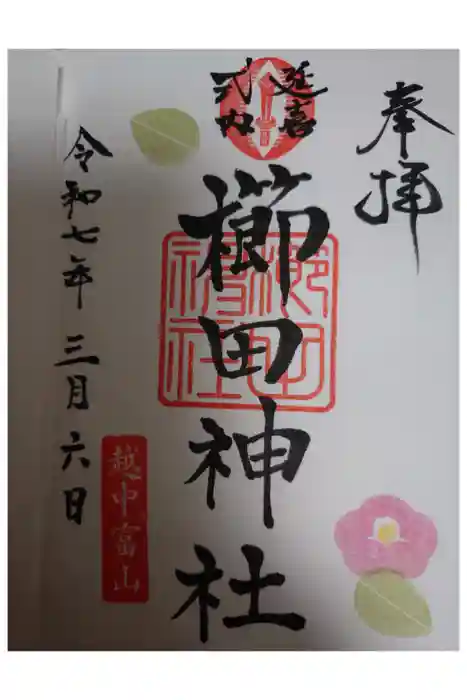 奉拝
延喜
式内
櫛田神社
櫛田
神社
越中富山
令和七年三月六日